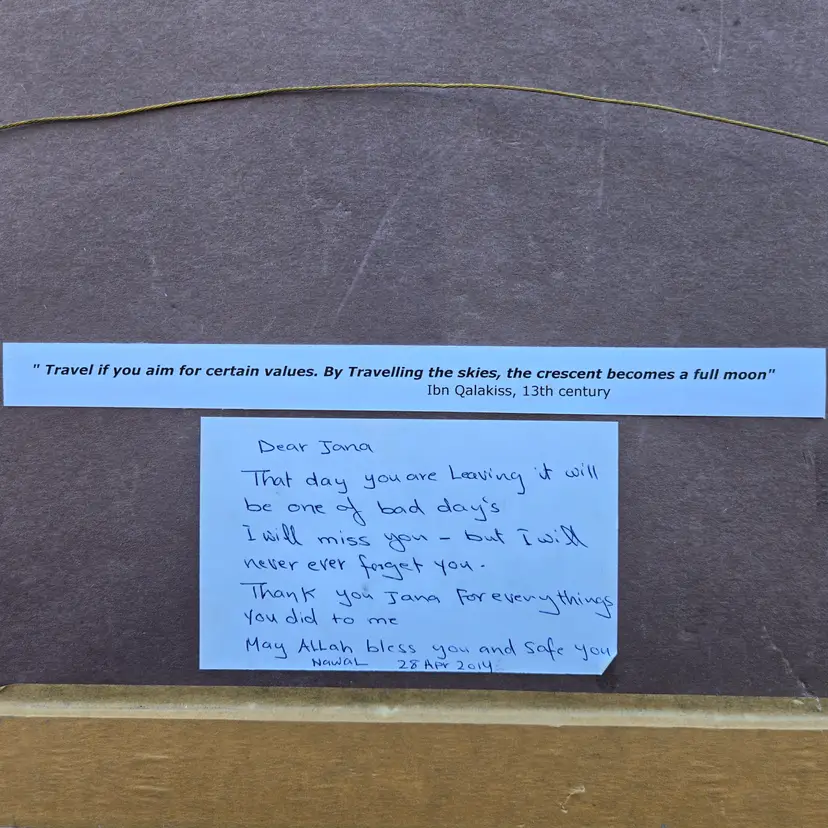 " Travel if you aim for certain values. By Travelling the skies, the crescent becomes a full moon"
Ibn Qalakiss, 13th century
Dear Jana
That day you are Leaving it will
be one of bad day's
I will miss you – but I will
never ever forget you.
Thank you Jana For everythings
you did to me
May ALLah bless you and safe you
NawaL 28 Apr 2014